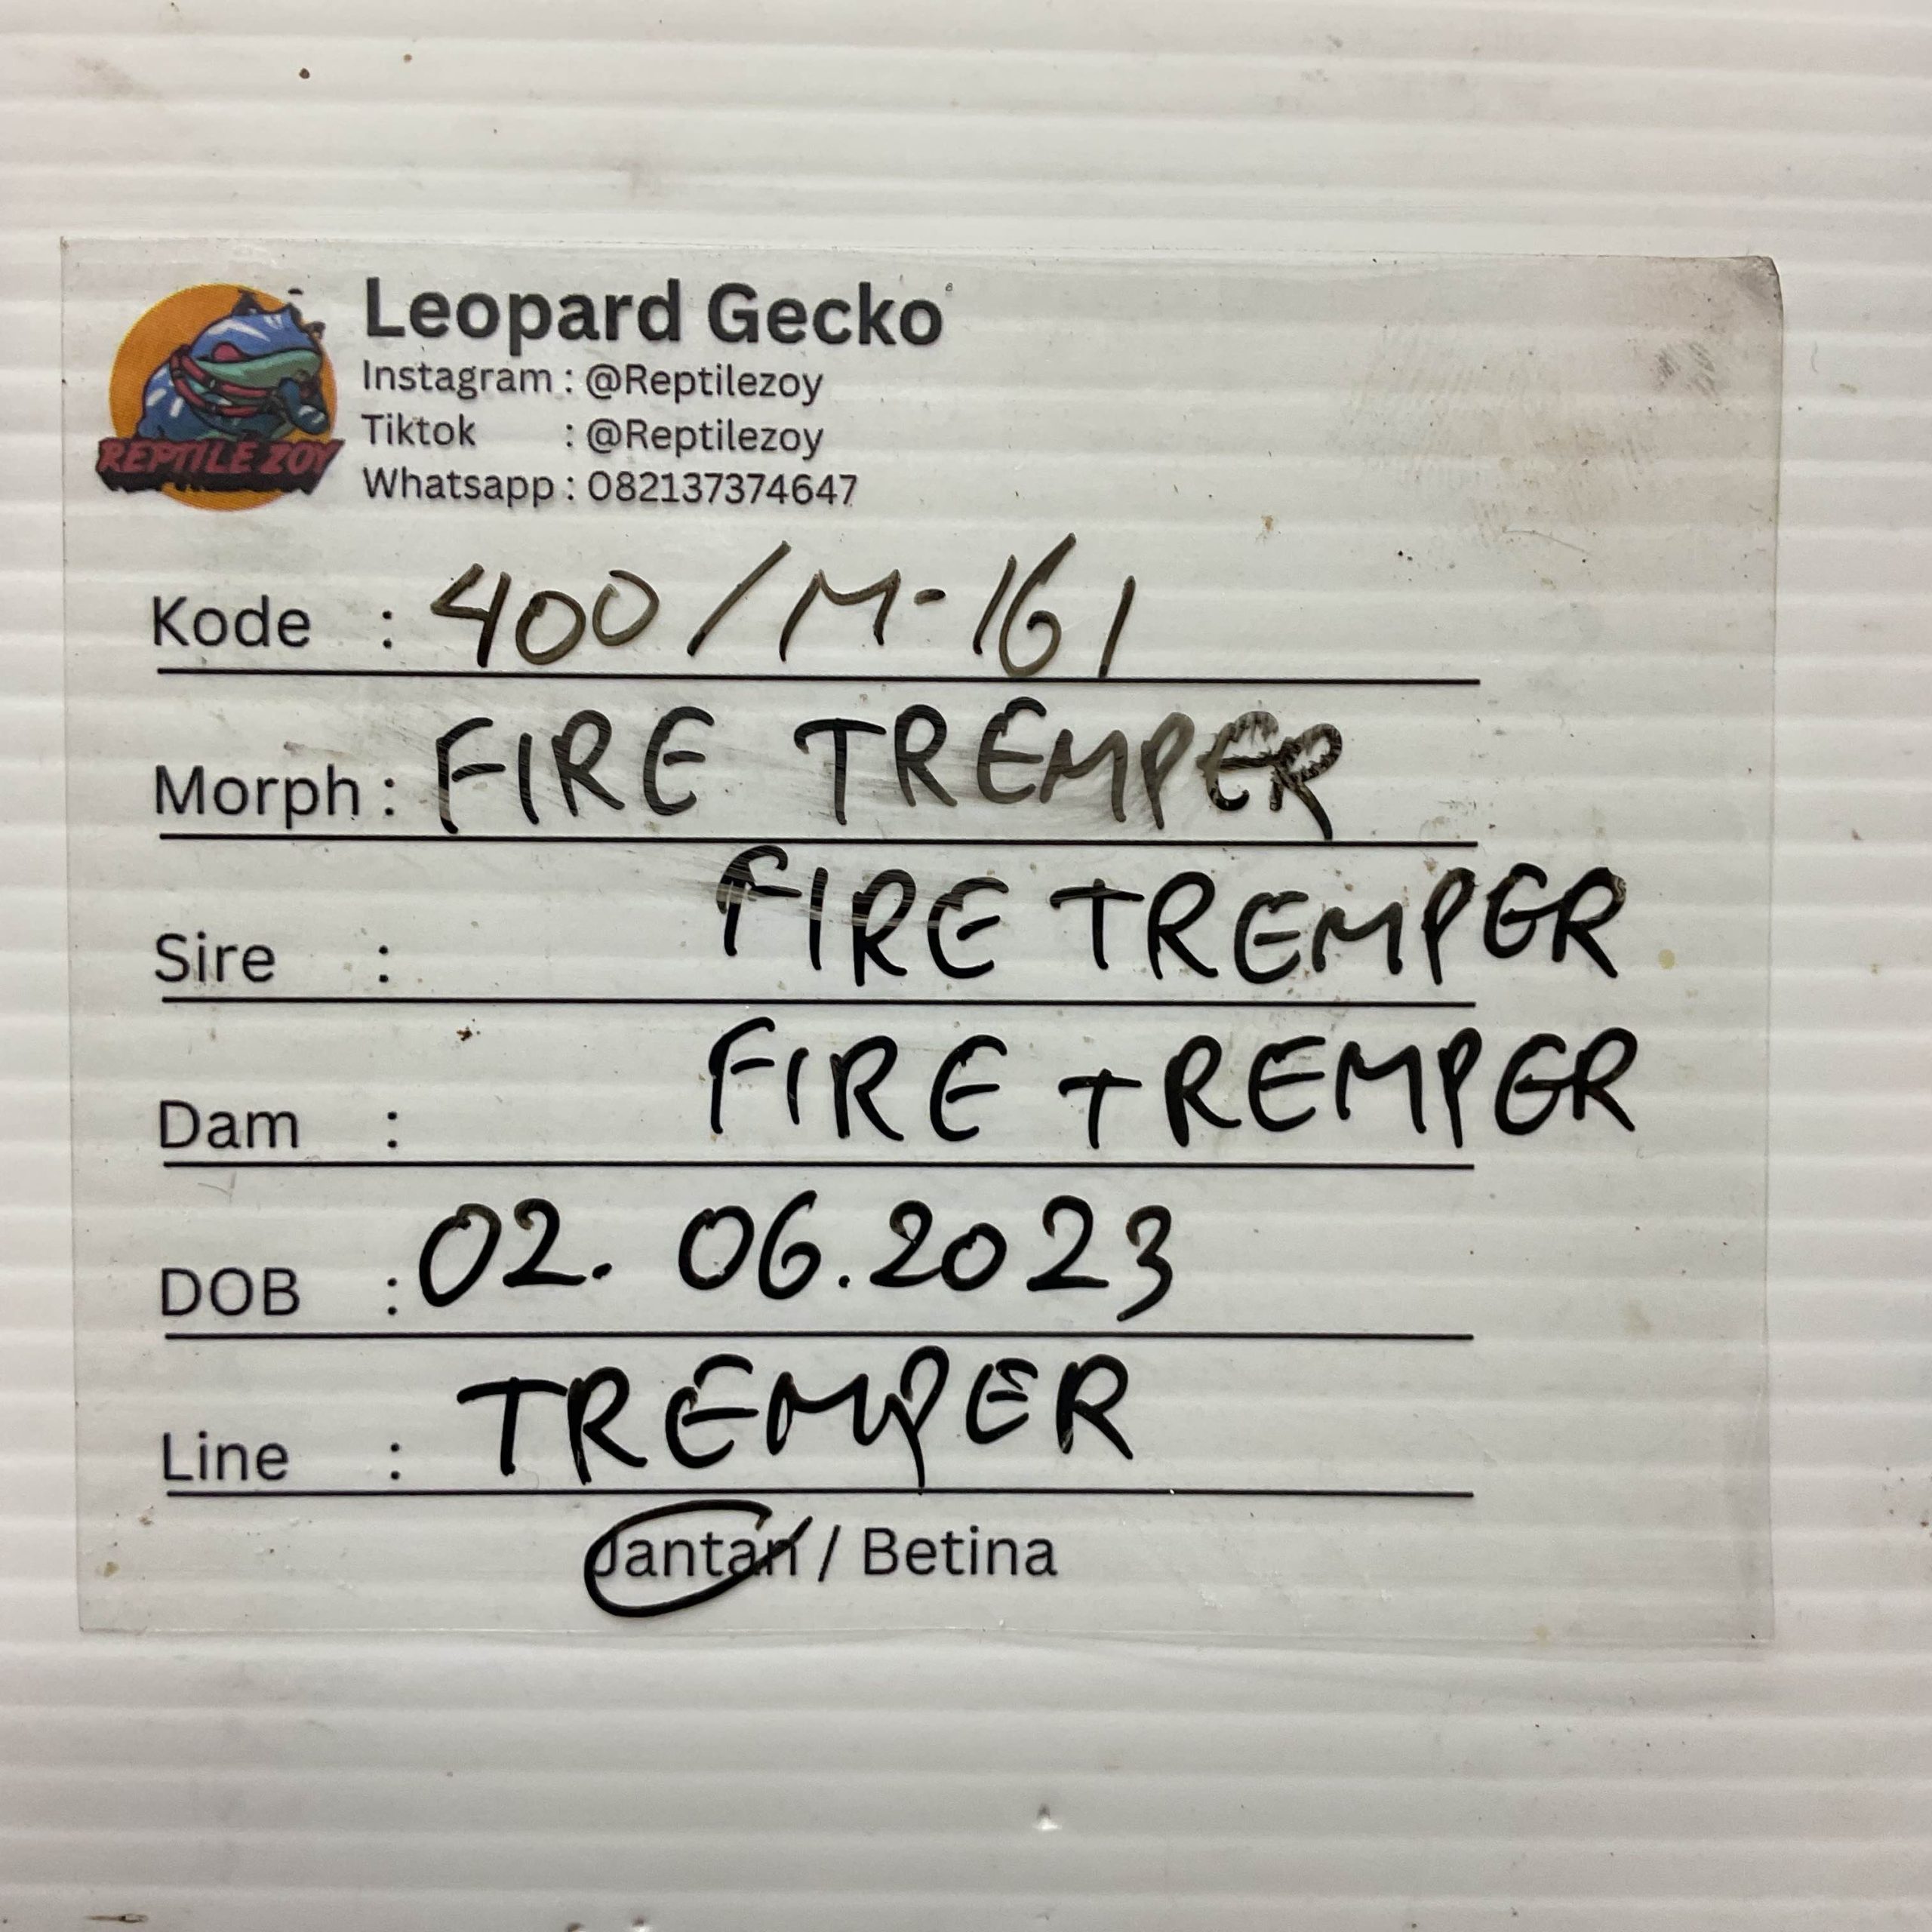 REPTILE ZOY
Leopard Gecko
Instagram : @Reptilezoy
Tiktok : @Reptilezoy
Whatsapp : 082137374647
Kode : 400/M-161
Morph : FIRE TREMPER
Sire : FIRE TREMPER
Dam : FIRE TREMPER
DOB : 02.06.2023
Line : TREMPER
Jantan / Betina